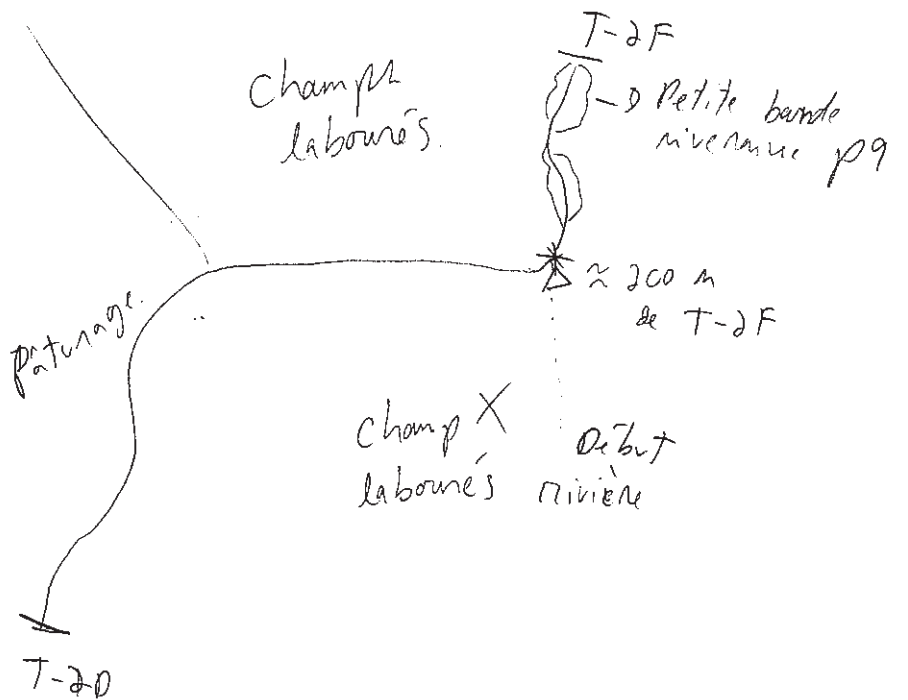 T-2F
Champs
labourés.
→ Petite bande
riveraine p9
≈ 200 m
de T-2F
pâturage.
Champ X
labourés
Début
rivière
T-2D